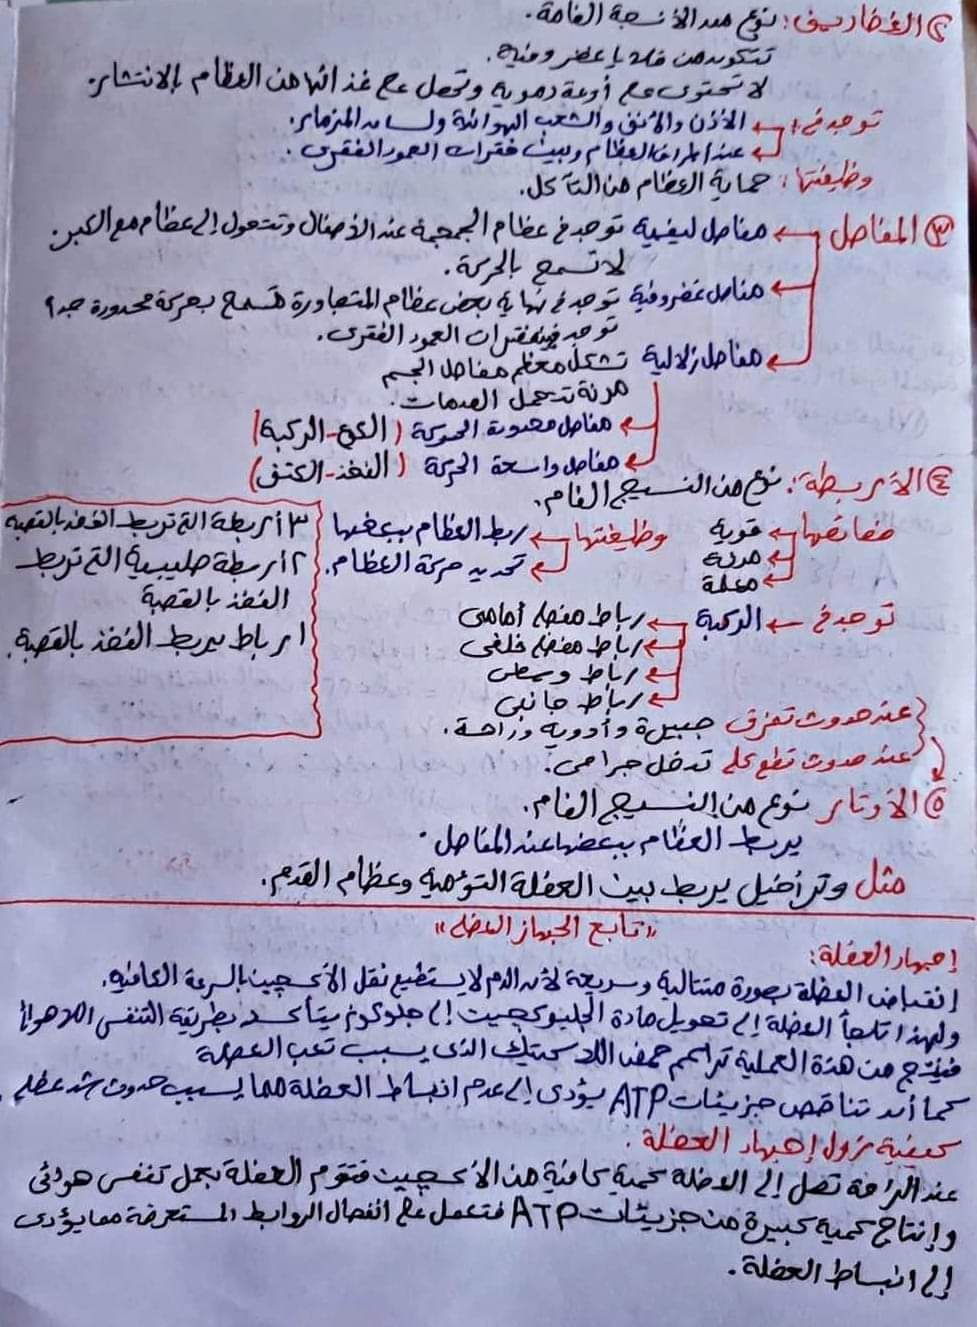 ٢ الغضاريف: نوع من الأنسجة الضامة.
تتكون من خلايا غضروفية.
لا تحتوى على أوعية دموية وتحصل على غذائها من العظام بالانتشار.
توجد في: الأذن والأنف والشعب الهوائية ولسان المزمار.
عند أطراف العظام وبين فقرات العمود الفقرى.
وظيفتها: حماية العظام من التآكل.
٣ المفاصل
مفاصل ليفية توجد في عظام الجمجمة عند الأطفال وتتحول إلى عظام مع الكبر.
لا تسمح بالحركة.
مفاصل غضروفية توجد في نهاية بعض عظام المتجاورة تسمح بحركة محدودة جداً
توجد بين فقرات العمود الفقرى.
مفاصل زلالية تشكل معظم مفاصل الجسم
مرنة تتحمل الصدمات.
مفاصل محدودة الحركة (الكوع - الركبة)
مفاصل واسعة الحركة (الفخذ - الكتف)
٤ الأربطة: نوع من النسيج الضام.
خصائصها قوية
مرنة
وظيفتها ربط العظام ببعضها
تحديد حركة العظام.
توجد في الركبة رباط متصل أمامى
رباط متصل خلفى
رباط وسطى
رباط جانبى
٣ أربطة التى تربط الفخذ بالقصبة
٢ أربطة صليبية التى تربط
الفخذ بالقصبة
١ رباط يربط الفخذ بالقصبة.
عند حدوث تمزق جبيرة وأدوية وراحة.
عند حدوث قطع كلى تدخل جراحى.
٥ الأوتار نوع من النسيج الضام.
يربط العظام ببعضها عند المفاصل.
مثل وتر أخيل يربط بين العضلة التؤمية وعظام القدم.
"تابع الجهاز العضلى"
إجهاد العضلة:
إنقباض العضلة بصورة متتالية وسريعة لأن الدم لا يستطيع نقل الأكسجين بالسرعة الكافية.
ولهذا تلجأ العضلة إلى تحويل مادة الجليكوجين إلى جلوكوز يتأكسد بطريقة التنفس اللاهوائى
فينتج من هذة العملية تراكم حمض اللاكتيك الذى يسبب تعب العضلة
كما أن تناقص جزيئات ATP يؤدى إلى عدم انبساط العضلة مما يسبب حدوث شد عضلى.
كيفية زوال إجهاد العضلة.
عند الراحة تصل إلى العضلة كمية كافية من الأكسجين فتقوم العضلة بعمل تنفس هوائى
وإنتاج كمية كبيرة من جزيئات ATP فتعمل على انفصال الروابط المستعرضة مما يؤدى
إلى انبساط العضلة.